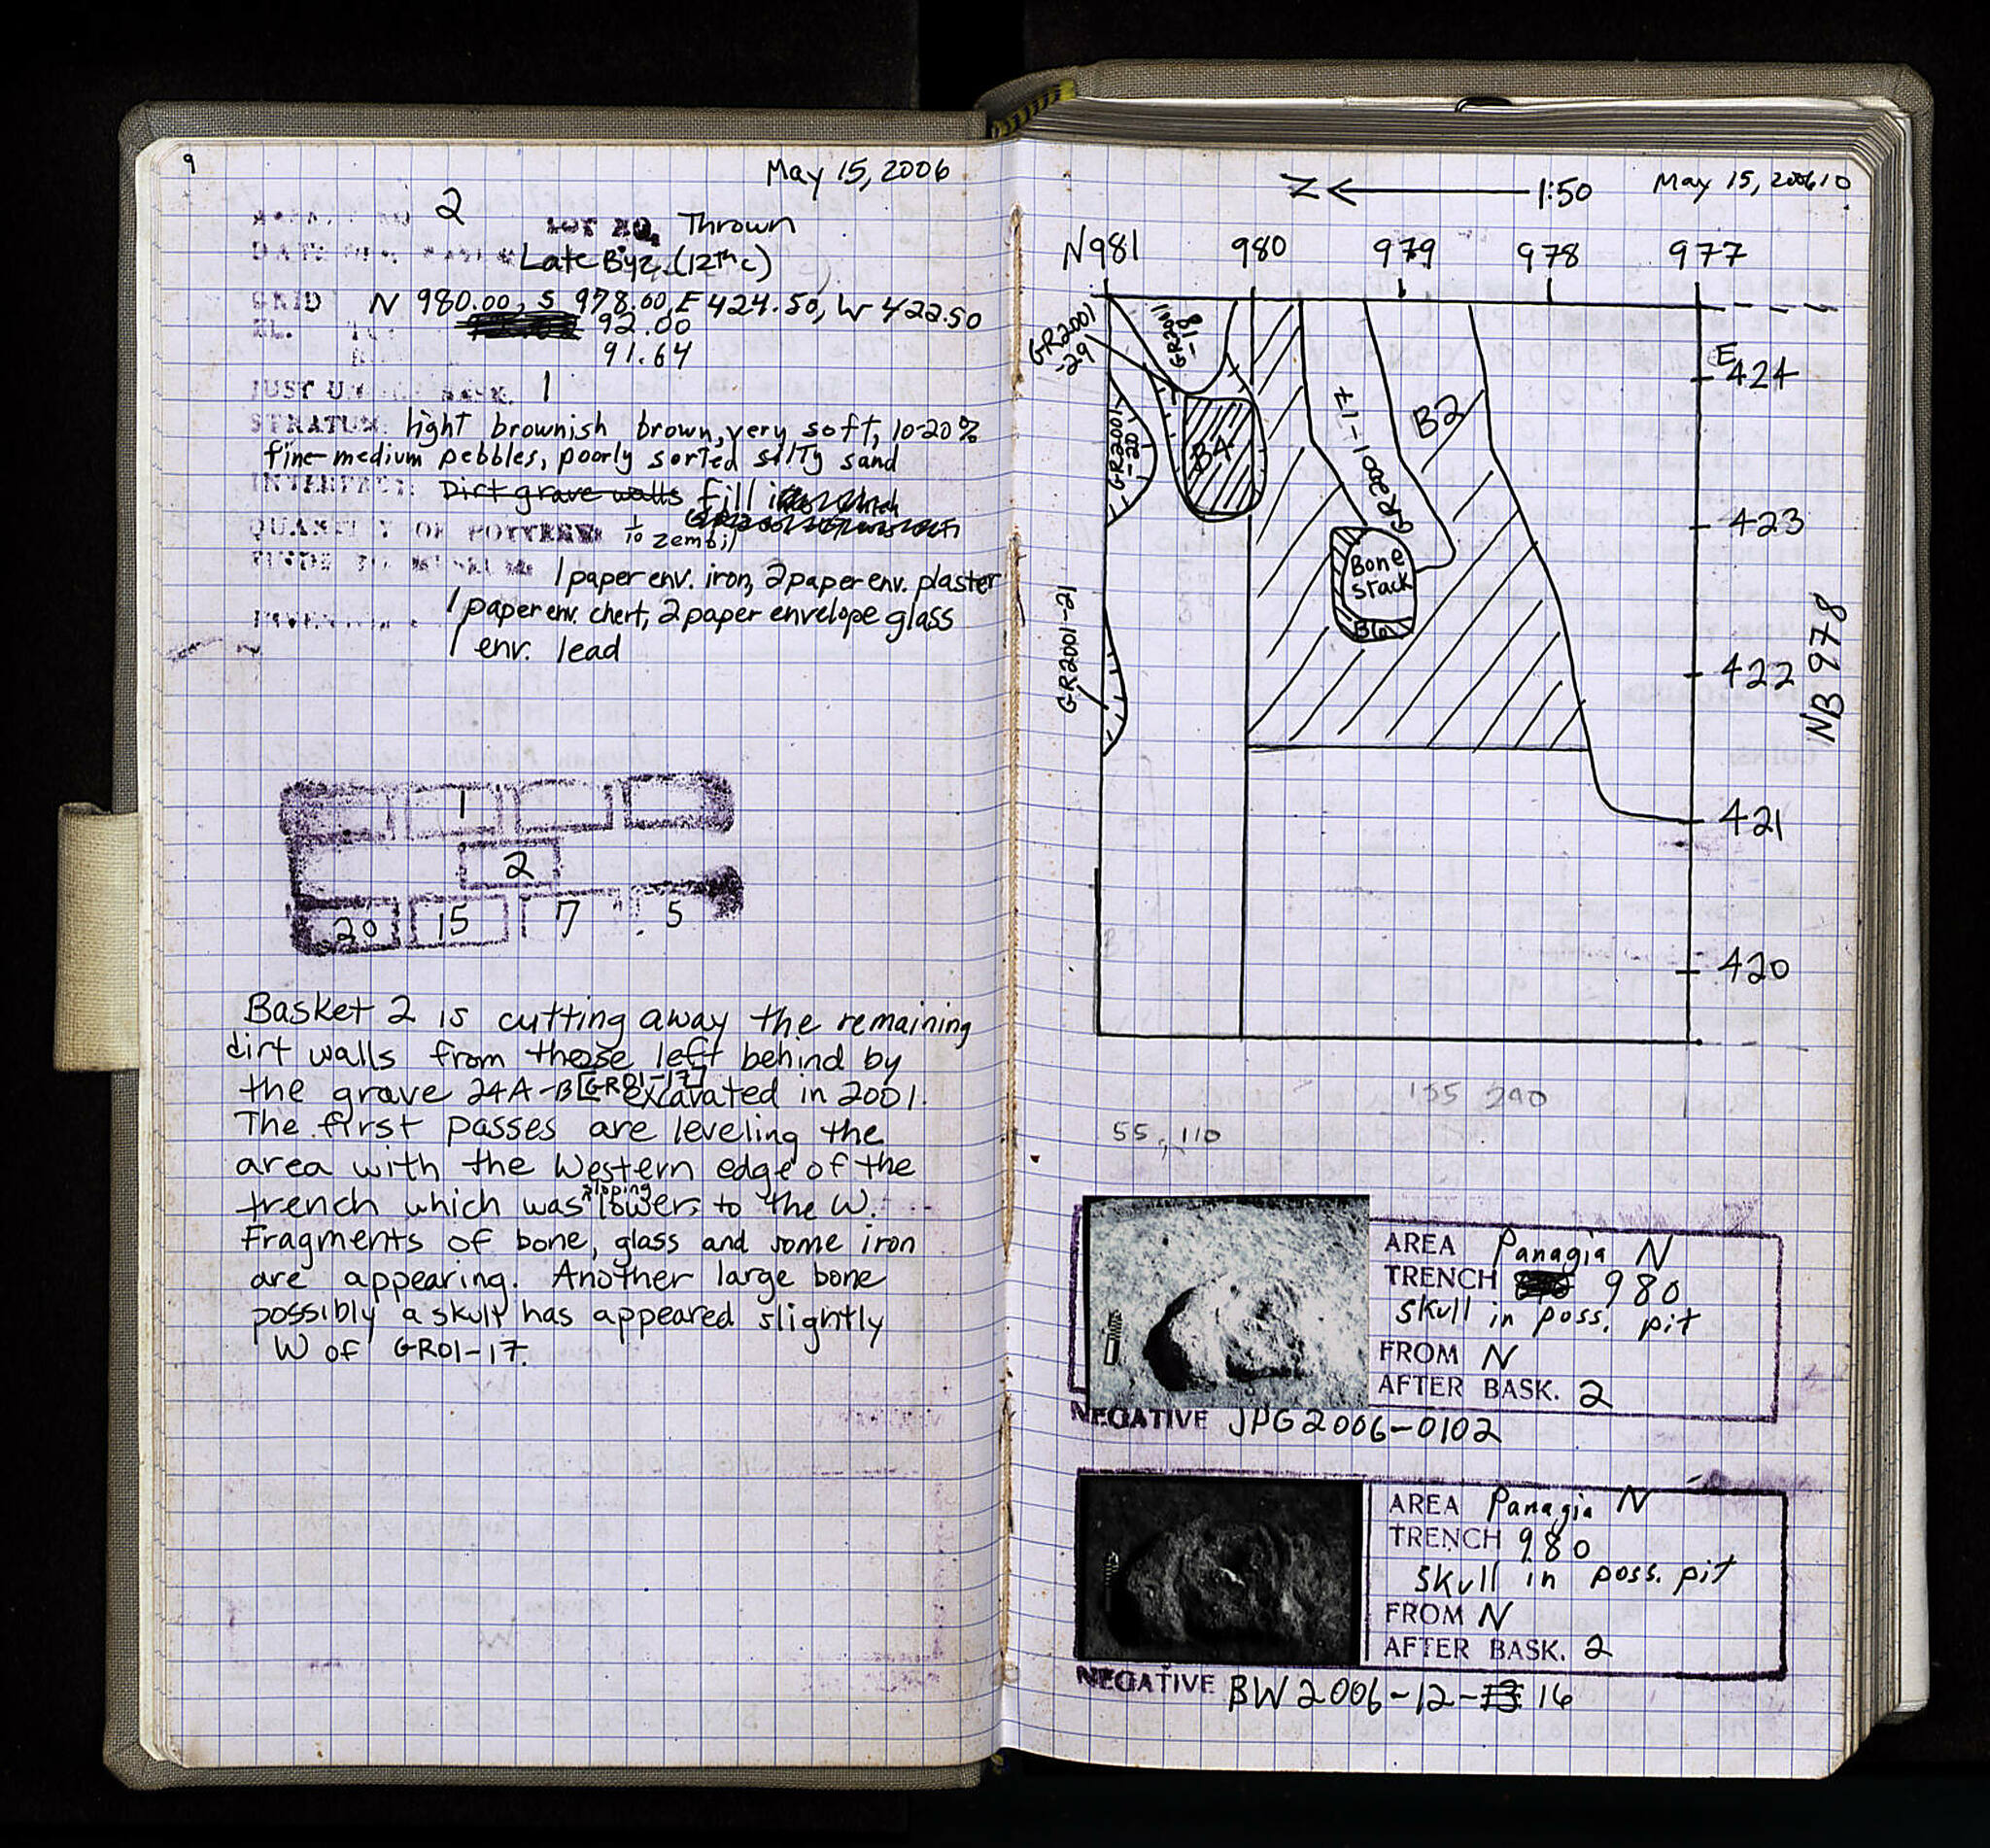 9
May 15, 2006
2
LOT NO. Thrown
Late Byz. (12th c)
GRID N 980.00, S 978.00, E 424.50, W 422.50
EL. 92.00
91.64
JUST UNDER BASK. 1
STRATUM: light brownish brown, very soft, 10-20%
fine-medium pebbles, poorly sorted silty sand
INTERFACE: Dirt grave walls fill
QUANTITY OF POTTERY: 1/10 zembil
FINDS TO MUSEUM: 1 paper env. iron, 2 paper env. plaster
1 paper env. chert, 2 paper envelope glass
1 env. lead
1
2
20 15 7 5
Basket 2 is cutting away the remaining
dirt walls from those left behind by
the grave 24A-B [GR01-17] excavated in 2001.
The first passes are leveling the
area with the Western edge of the
trench which was sloping lower to the W.
Fragments of bone, glass and some iron
are appearing. Another large bone
possibly a skull has appeared slightly
W of GR01-17.
N 1:50 May 15, 2006 10
N981 980 979 978 977
GR2001-29
GR2001-18
GR2001-20
B4
GR2001-17
B2
Bone stack
B6
GR2001-21
E 424
423
422
421
420
NB 978
155 240
55, 110
AREA Panagia N
TRENCH 980
skull in poss. pit
FROM N
AFTER BASK. 2
NEGATIVE JPG 2006-0102
AREA Panagia N
TRENCH 980
skull in poss. pit
FROM N
AFTER BASK. 2
NEGATIVE BW 2006-12-13 16